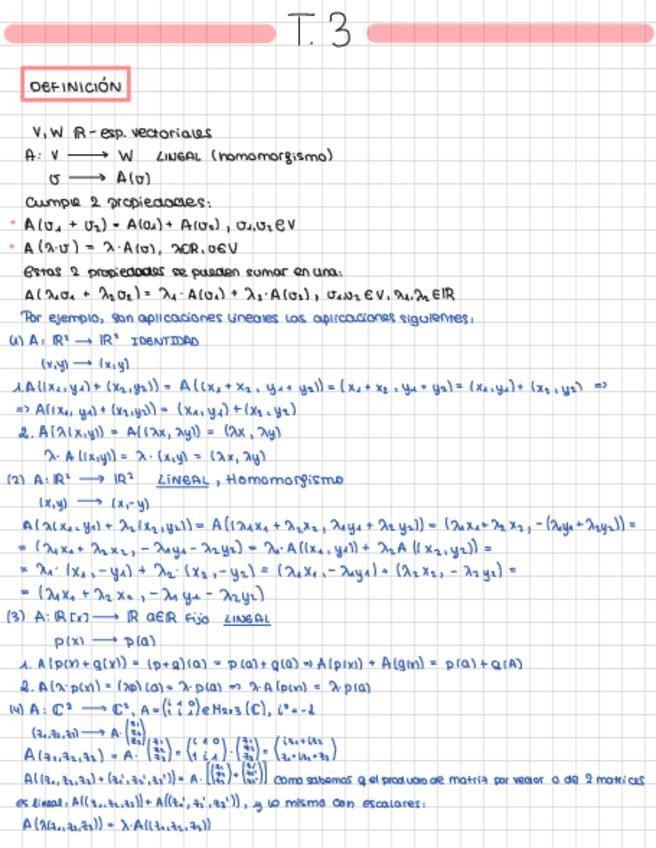 T. 3
DEFINICIÓN
V, W R-esp. vectoriales
A: V ⟶ W LINEAL (homomorfismo)
v ⟶ A(v)
Cumple 2 propiedades:
• A(v₁ + v₂) = A(v₁) + A(v₂), v₁,v₂ ∈ V
• A(λ·v) = λ·A(v), λ∈R, v∈V
Estas 2 propiedades se pueden sumar en una:
A(λ₁v₁ + λ₂v₂) = λ₁·A(v₁) + λ₂·A(v₂), v₁,v₂ ∈ V, λ₁,λ₂ ∈ IR
Por ejemplo, son aplicaciones lineales las aplicaciones siguientes:
(1) A: IR² ⟶ IR² IDENTIDAD
(x,y) ⟶ (x,y)
1. A((x₁,y₁) + (x₂,y₂)) = A((x₁+x₂, y₁+y₂)) = (x₁+x₂, y₁+y₂) = (x₁,y₁) + (x₂,y₂) =>
=> A((x₁,y₁) + (x₂,y₂)) = (x₁,y₁) + (x₂,y₂)
2. A(λ(x,y)) = A((λx, λy)) = (λx, λy)
λ·A((x,y)) = λ·(x,y) = (λx, λy)
(2) A: IR² ⟶ IR² LINEAL, Homomorfismo
(x,y) ⟶ (x,-y)
A(λ₁(x₁,y₁) + λ₂(x₂,y₂)) = A((λ₁x₁ + λ₂x₂, λ₁y₁ + λ₂y₂)) = (λ₁x₁ + λ₂x₂, -(λ₁y₁ + λ₂y₂)) =
= (λ₁x₁ + λ₂x₂, -λ₁y₁ - λ₂y₂) = λ₁·A((x₁,y₁)) + λ₂A((x₂,y₂)) =
= λ₁·(x₁,-y₁) + λ₂·(x₂,-y₂) = (λ₁x₁, -λ₁y₁) + (λ₂x₂, -λ₂y₂) =
= (λ₁x₁ + λ₂x₂, -λ₁y₁ - λ₂y₂)
(3) A: IR[x] ⟶ IR a∈IR Fijo LINEAL
p(x) ⟶ p(a)
1. A(p(x)+q(x)) = (p+q)(a) = p(a)+q(a) => A(p(x)) + A(q(x)) = p(a)+q(A)
2. A(λ·p(x)) = (λp)(a) = λ·p(a) => λ·A(p(x)) = λ·p(a)
(4) A: C³ ⟶ C², A = (i i 0 / 1 i 1) ∈ M₂ₓ₃(C), i² = -1
(z₁,z₂,z₃) ⟶ A·(z₁ z₂ z₃)
A(z₁,z₂,z₃) = A·(z₁ z₂ z₃) = (i i 0 / 1 i 1)·(z₁ z₂ z₃) = (iz₁+iz₂ / z₁+iz₂+z₃)
A((z₁,z₂,z₃) + (z₁',z₂',z₃')) = A·[(z₁ z₂ z₃) + (z₁' z₂' z₃')] como sabemos q el producto de matriz por vector o de 2 matrices
es lineal: A((z₁,z₂,z₃)) + A((z₁',z₂',z₃')), y lo mismo con escalares:
A(λ(z₁,z₂,z₃)) = λ·A((z₁,z₂,z₃))